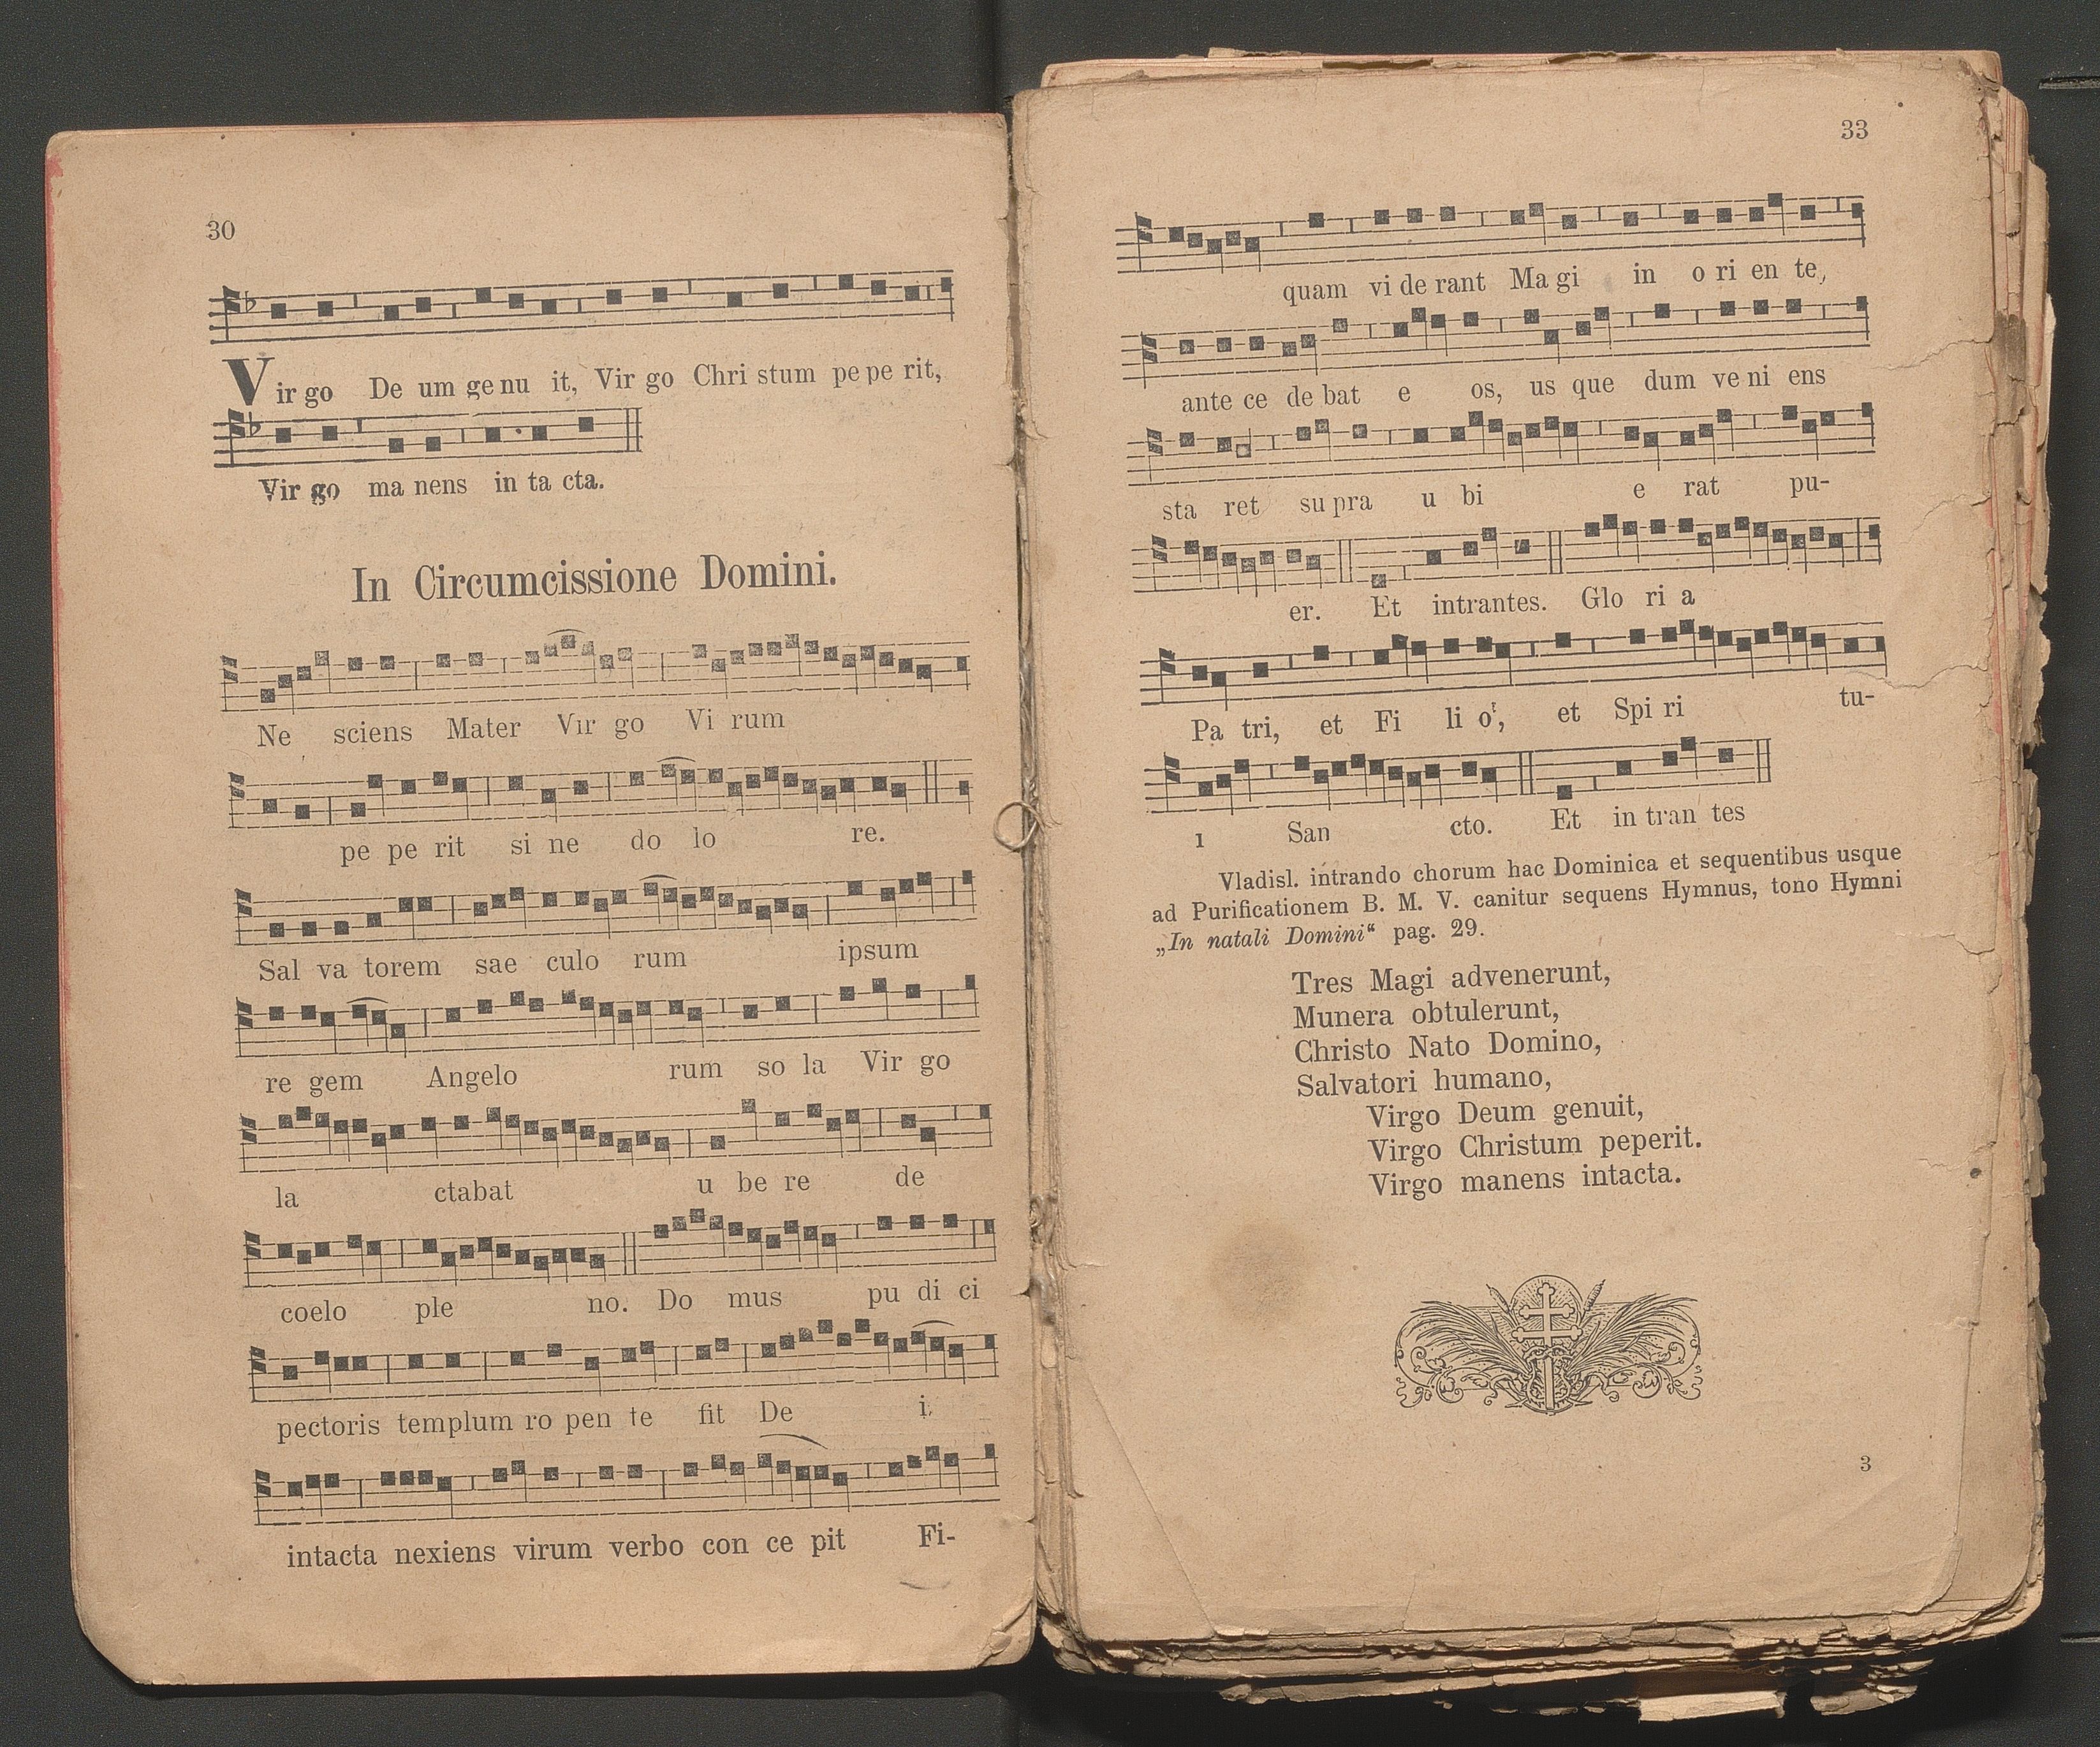 30
Vir go De um ge nu it, Vir go Chri stum pe pe rit,
Vir go ma nens in ta cta.
In Circumcissione Domini.
Ne sciens Mater Vir go Vi rum
pe pe rit si ne do lo re.
Sal va torem sae culo rum ipsum
re gem Angelo rum so la Vir go
la ctabat u be re de
coelo ple no. Do mus pu di ci
pectoris templum ro pen te fit De i,
intacta nexiens virum verbo con ce pit Fi-
33
quam vi de rant Ma gi in o ri en te,
ante ce de bat e os, us que dum ve ni ens
sta ret su pra u bi e rat pu-
er. Et intrantes. Glo ri a
Pa tri, et Fi li o, et Spi ri tu-
ı San cto. Et in tran tes
Vladisl. intrando chorum hac Dominica et sequentibus usque
ad Purificationem B. M. V. canitur sequens Hymnus, tono Hymni
„In natali Domini“ pag. 29.
Tres Magi advenerunt,
Munera obtulerunt,
Christo Nato Domino,
Salvatori humano,
Virgo Deum genuit,
Virgo Christum peperit.
Virgo manens intacta.
3